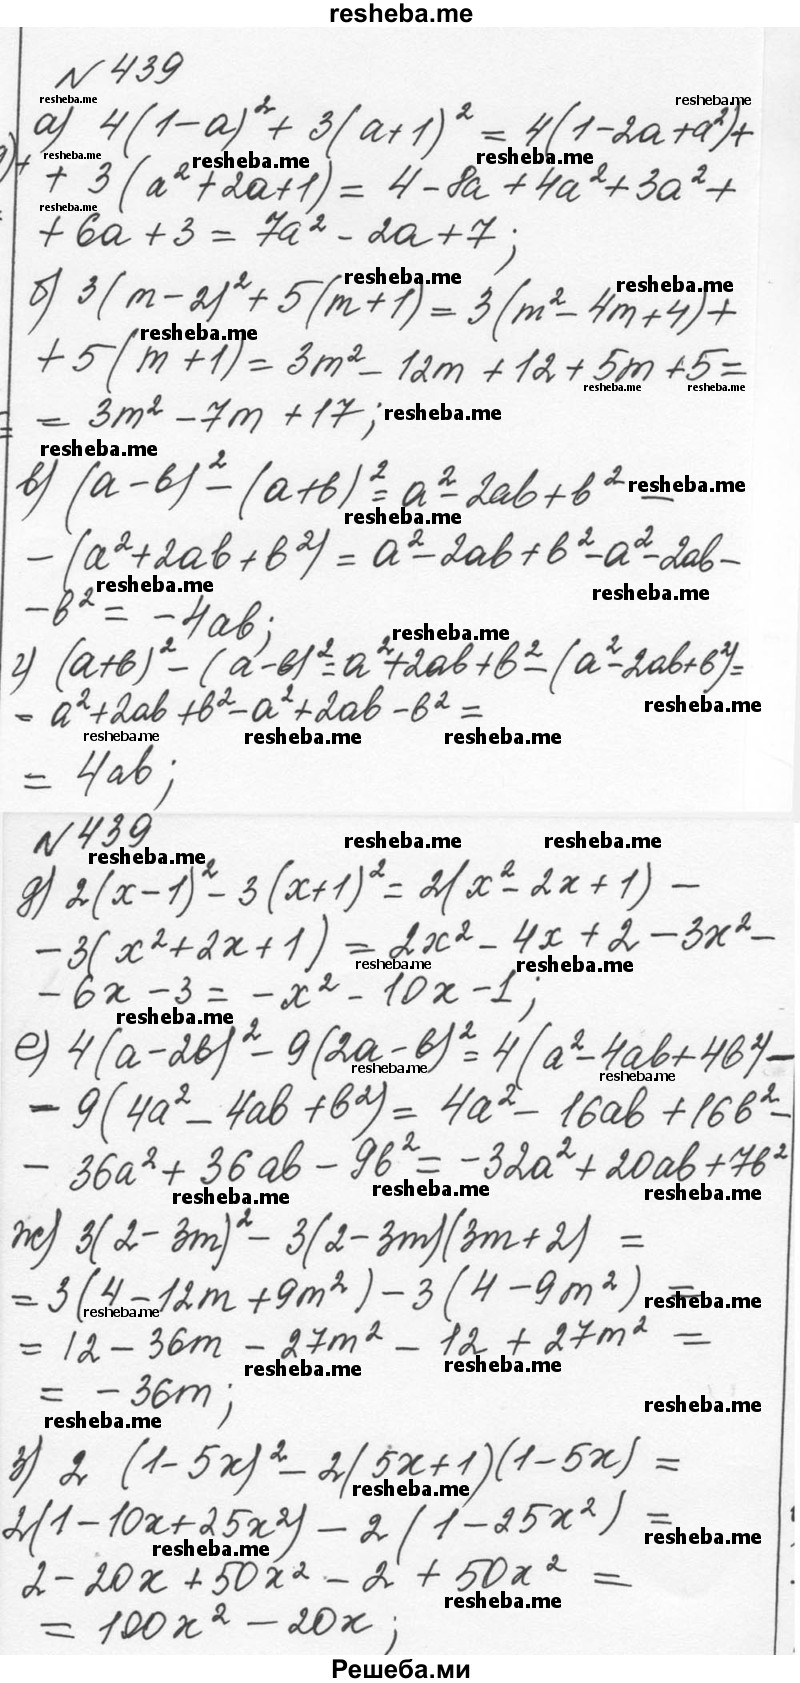 resheba.me
№439
а) 4(1-a)² + 3(a+1)² = 4(1-2a+a²)+
+ 3(a²+2a+1) = 4-8a+4a²+3a²+
+6a+3 = 7a²-2a+7;
б) 3(m-2)² + 5(m+1) = 3(m²-4m+4)+
+5(m+1) = 3m²-12m+12+5m+5=
= 3m²-7m+17;
в) (a-b)² - (a+b)² = a²-2ab+b² -
-(a²+2ab+b²) = a²-2ab+b²-a²-2ab-
-b² = -4ab;
г) (a+b)² - (a-b)² = a²+2ab+b² - (a²-2ab+b²)=
= a²+2ab+b²-a²+2ab-b² =
= 4ab;
№439
д) 2(x-1)² - 3(x+1)² = 2(x²-2x+1) -
-3(x²+2x+1) = 2x²-4x+2-3x²-
-6x-3 = -x²-10x-1;
е) 4(a-2b)² - 9(2a-b)² = 4(a²-4ab+4b²)-
-9(4a²-4ab+b²) = 4a²-16ab+16b²-
-36a²+36ab-9b² = -32a²+20ab+7b²
ж) 3(2-3m)² - 3(2-3m)(3m+2) =
=3(4-12m+9m²)-3(4-9m²) =
= 12-36m-27m²-12+27m² =
= -36m;
з) 2 (1-5x)² - 2(5x+1)(1-5x) =
2(1-10x+25x²) - 2(1-25x²) =
2-20x+50x²-2+50x² =
= 100x²-20x;
Решеба.ми